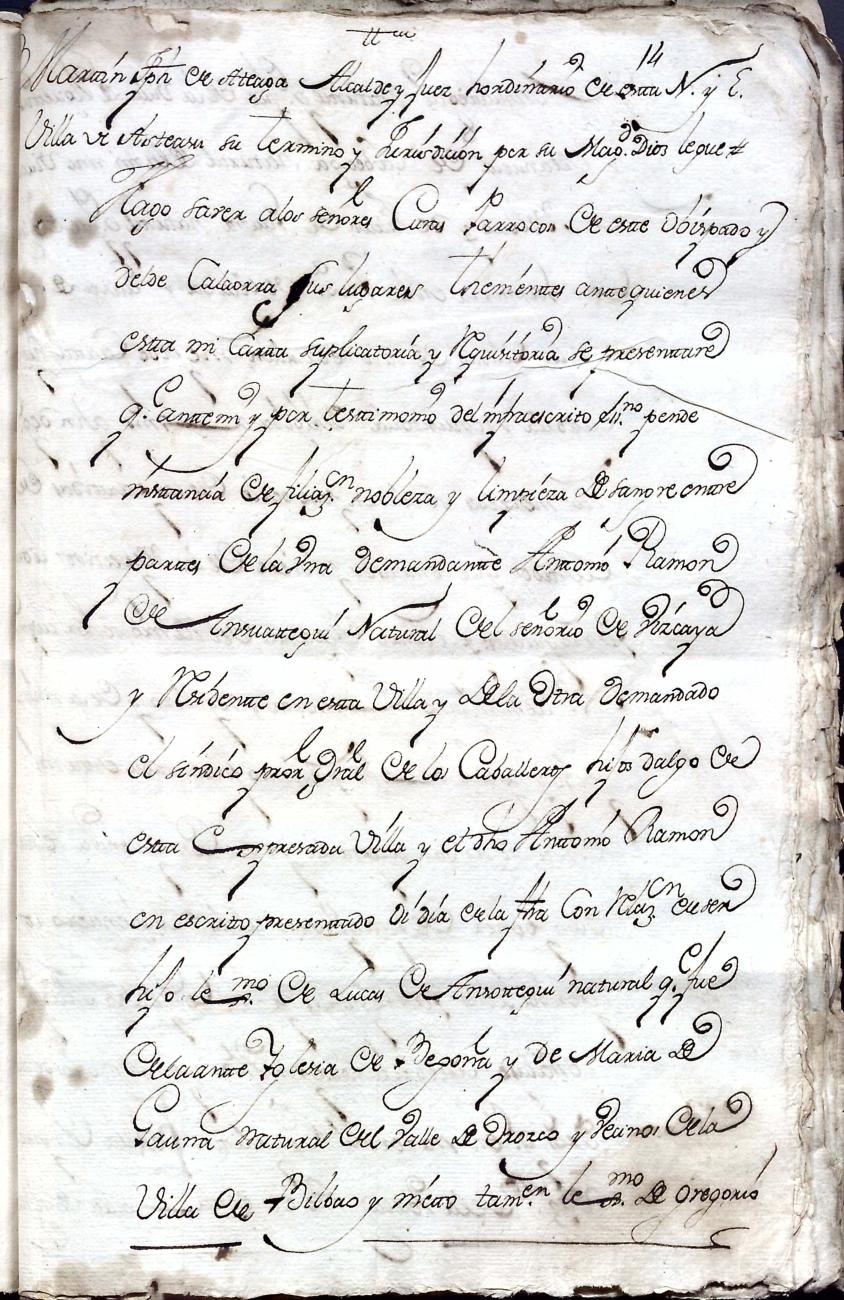 14
Martin Jph de Ateaga Alcalde y Juez hordinario de esta N. y L.
Villa de Asteasu su termino y Jurisdicion por su Magd. Dios le gue #
Hago saver alos señores Curas Parrocos de este Obispado y
delde Calaorra sus lugares thenientes ante quienes
esta mi Carta suplicatoria y Requisitoria se presentare
q.e ante mi y por testimonio del infraescrito ss.no pende
instancia de filiaz.on nobleza y limpieza de sangre entre
partes de la Vna demandante Antonio Ramon
de Ansuategui Natural del señorio de Vizcaya
y Residente en esta Villa y de la Otra Demandado
el sindico pror Gral de los Caballeros hijos dalgo de
esta Expresada Villa y el dho Antonio Ramon
en escrito presentado oi dia de la fha Con Rlaz.on de ser
hijo lex.mo de Lucas de Ansotegui natural q.e fue
de la ante Yglesia de Begoña y de Maria de
Gauna natural del Valle de Orozco y Vecinos de la
Villa de Bilbao y nieto tamv.en lex.mo de Gregorio